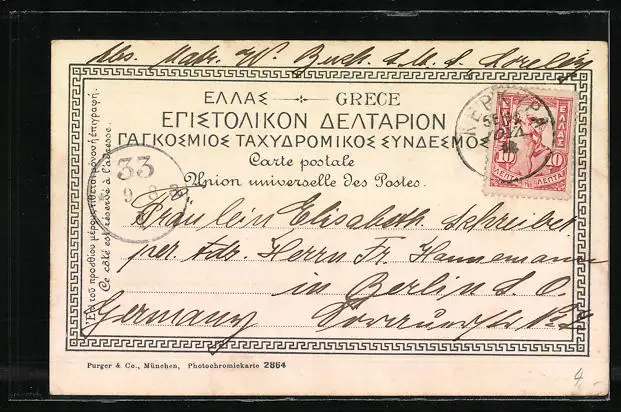 Abs. Matr. W. Buch. S.M.S. Loreley
ΕΛΛΑΣ GRECE
ΕΠΙΣΤΟΛΙΚΟΝ ΔΕΛΤΑΡΙΟΝ
ΠΑΓΚΟΣΜΙΟΣ ΤΑΧΥΔΡΟΜΙΚΟΣ ΣΥΝΔΕΣΜΟΣ
Carte postale
Union universelle des Postes.
Ἐπὶ τοῦ προσθίου μέρους τίθεται μόνον ἡ ἐπιγραφή.
Ce côté est réservé à l'adresse.
ΚΕΡΚΥΡΑ
ΕΛΛΑΣ
10 10
ΛΕΠΤΑ ΛΕΠΤΑ
33
Fräulein Elisabeth Schreiber
per Adr. Herrn Fr. Hannemann
in Berlin S.O.
Germany
Purger & Co., München, Photochromiekarte 2864
4.-